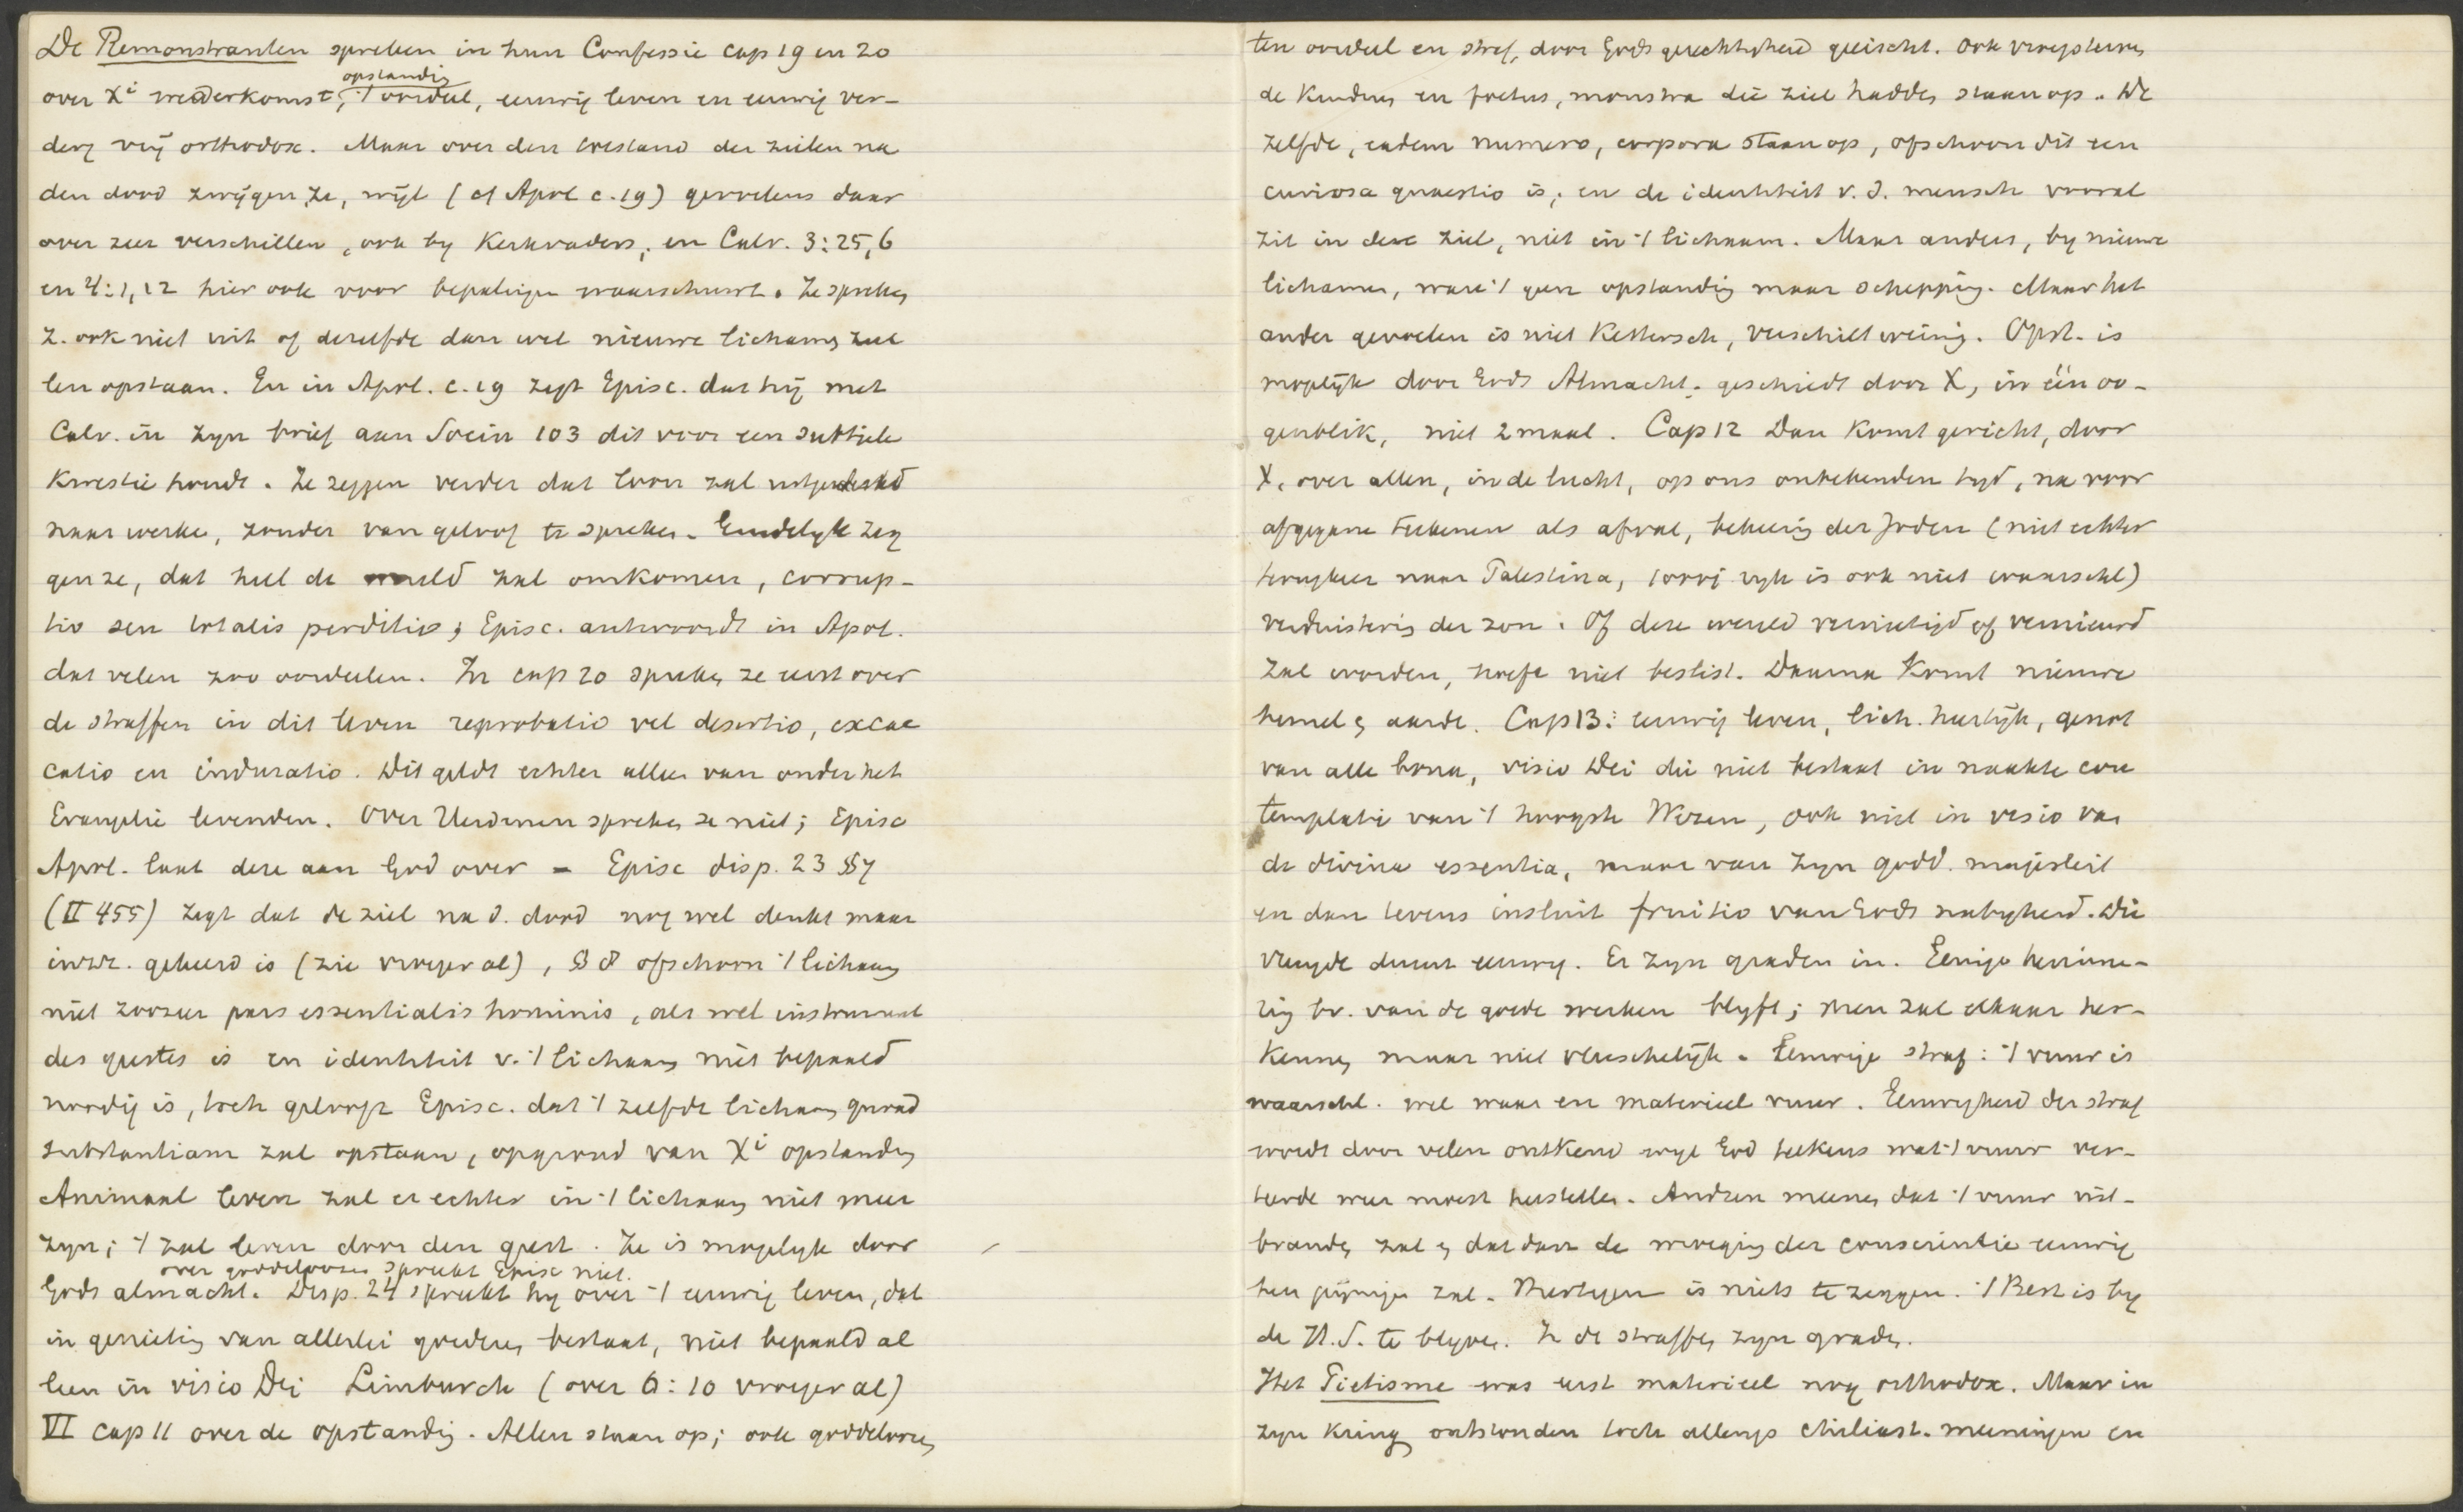 De Remonstranten spreken in hun Confessie cap 19 en 20
opstandig
over Xi wederkomst, 't oordeel, eeuwig leven en eeuwig ver-
derf vrij orthodox. Maar over den toestand der zielen na
den dood zwijgen ze, wijl (cf Apol c. 19) gevoelens daar
over zeer verschillen, ook by Kerkvaders, en Calv. 3:25,6
en 4:1,12 hier ook voor bepalingen waarschuwt. Ze spreken
z. ook niet uit of dezelfde dan wel nieuwe lichamen zul
len opstaan. En in Apol. c. 19 zegt Episc. dat hij met
Calv. in zyn brief aan Socin 103 dit voor een subtiele
Kwestie houdt. Ze zeggen verder dat loon zal uitgedeeld
naar werken, zonder van geloof te spreken. Eindelyk zeg
gen ze, dat heel de wereld zal omkomen, corrup-
tio seu totalis perditio; Episc. antwoordt in Apol.
dat velen zoo oordeelen. In cap 20 spreken ze eerst over
de straffen in dit leven reprobatio vel desertio, excae
catio en induratio. Dit geldt echter alleen van onder het
Evangelie levenden. Over Heidenen spreken ze niet; Episc
Apol. laat deze aan God over – Episc disp. 23 §7
(II 455) zegt dat de ziel na d. dood nog wel denkt maar
inww. gekeerd is (zie vroeger al), § 8 ofschoon 't lichaam
niet zoozeer pars essentialis hominis, als wel instrument
des geestes is en identiteit v. 't lichaam niet bepaald
noodig is, toch gelooft Episc. dat 't zelfde lichaam quoad
substantiam zal opstaan, op grond van Xi opstanding
Animaal leven zal er echter in 't lichaam niet meer
zyn; 't zal leven door den geest. Ze is mogelyk door
over goddeloozen spreekt Episc niet.
Gods almacht. Disp. 24 spreekt hy over 't eeuwig leven, dat
in genieting van allerlei goederen bestaat, niet bepaald al
leen in visio Dei Limburch (over 6:10 vroeger al)
VI cap 11 over de opstandig. Allen staan op; ook goddeloozen
ten oordeel en straf, door Gods gerechtigheid geëischt. Ook
de Kinderen en foetus, monstra die ziel hadden staan op. De
zelfde, eadem numero, corpora staan op, ofschoon dit een
curiosa quaestio is; en de identiteit v. d. mensch vooral
zit in deze ziel, niet in 't lichaam. Maar anders, by nieuwe
lichamen, ware 't geen opstandig maar schepping. Maar het
ander gevoelen is niet Kettersch, verschilt weinig. Opst. is
mogelijk door Gods Almacht. geschiedt door X, in één oo-
genblik, niet 2 maal. Cap 12 Dan Komt gericht, door
X, over allen, in de lucht, op ons onbekenden tyd, na voor
afgegane teekenen als afval, bekeering der Joden (niet echter
terugkeer naar Palestina, 1000j ryk is ook niet waarschl)
verduistering der zon. Of deze wereld vernietigd of vernieuwd
zal worden, hoeft niet beslist. Daarna Komt nieuwe
hemel en aarde. Cap 13: eeuwig leven, lich. heerlijk, genot
van alle bona, visio Dei die niet bestaat in naakte con
templatie van 't hoogste Wezen, ook niet in visio van
de divina essentia, maar van zyn godd. majesteit
en dan tevens insluit fruitio van Gods nabyheid. Die
vreugde duurt eeuwig. Er zyn graden in. Eenige herinne-
ring bv. van de goede werken blyft; men zal elkaar her-
kennen, maar niet vleeschelijk. Eeuwige straf: 't vuur is
waarschl. wel waar en materieel vuur. Eeuwigheid der straf
wordt door velen ontkend wyl God telkens wat 't vuur ver-
teerde weer moest herstellen. Andren meenen dat 't vuur uit-
branden zal en dat dan de wroeging der conscientie eeuwig
hen pijnigen zal. is niets te zeggen. 't Best is by
de H.S. te blyven. In de straffen zyn graden.
Het Pietisme was eerst materieel nog orthodox. Maar in
zyn Kring ontstonden toch allengs chiliast. meeningen en